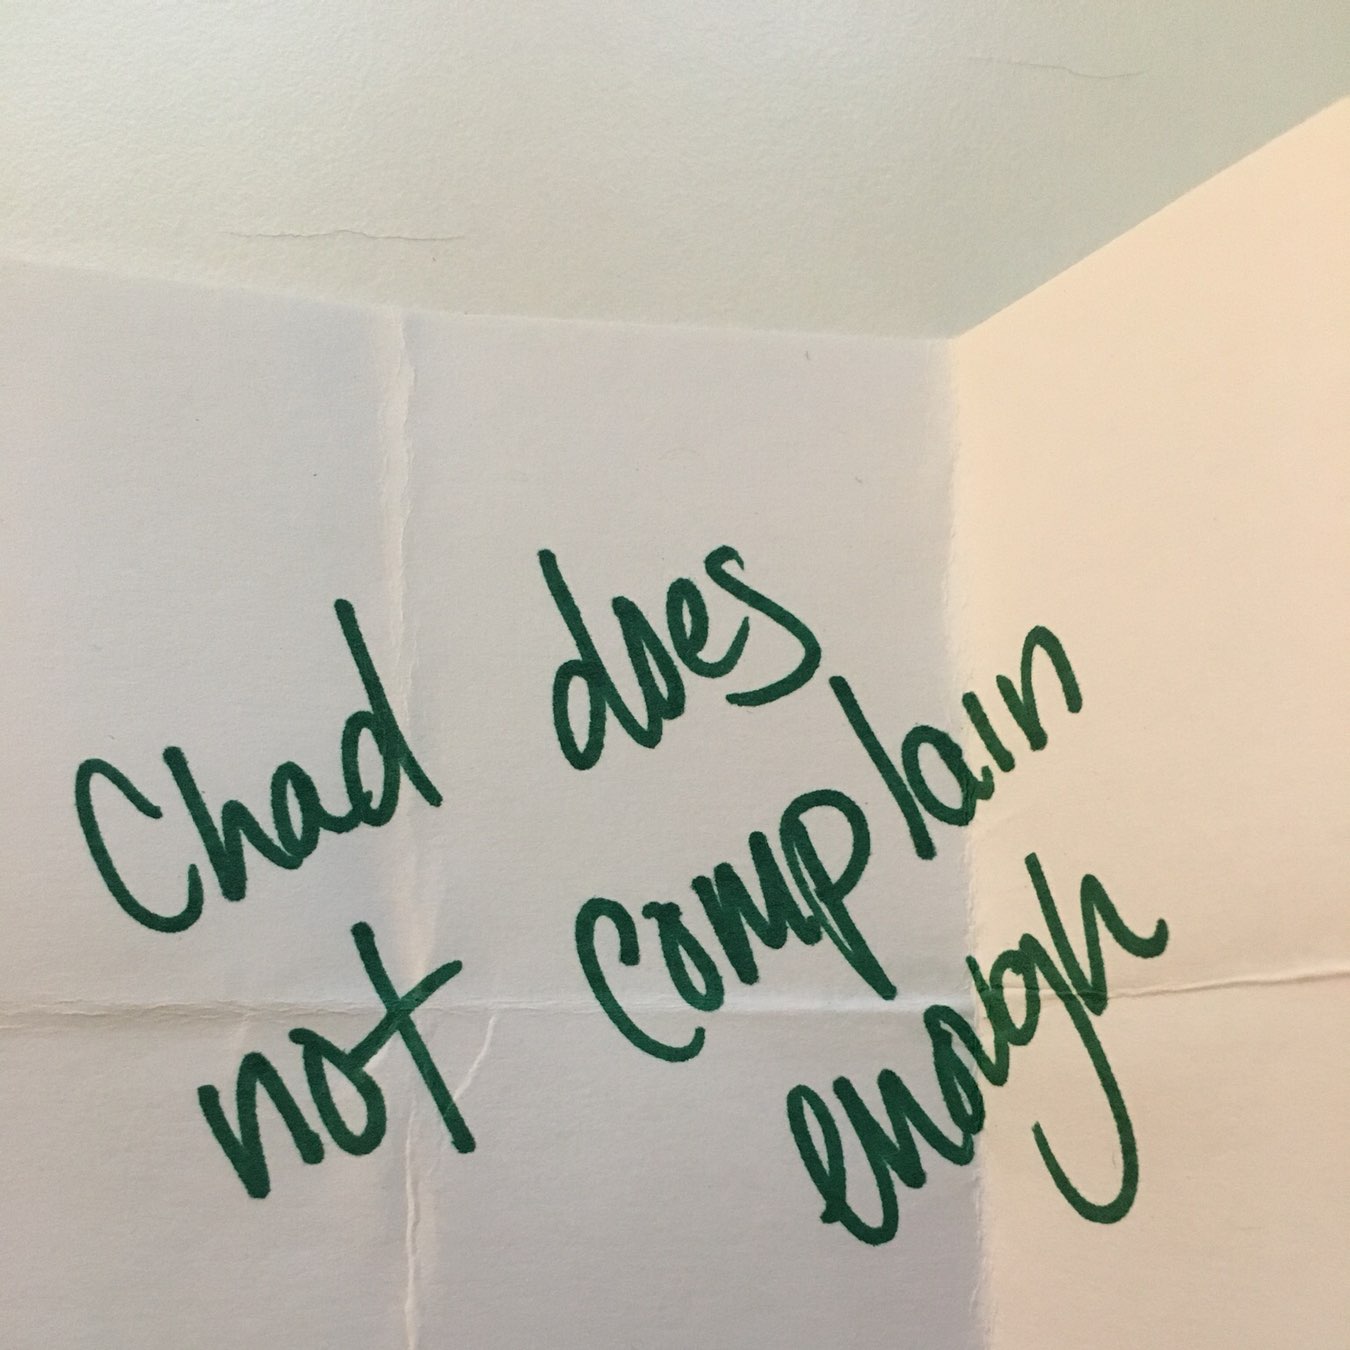 Chad does
not complain
enough